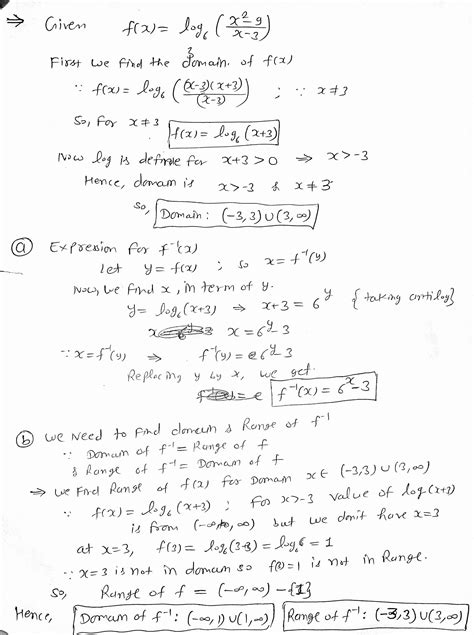 ⇒ Given f(x) = log₆ (x²-9 / x-3)
First we find the domain. of f(x)
∵ f(x) = log₆ ((x-3)(x+3) / (x-3)) ; ∵ x≠3
So, For x≠3 f(x) = log₆ (x+3)
Now log is define for x+3 > 0 ⇒ x>-3
Hence, domain is x>-3 & x≠3
So, Domain: (-3,3)∪(3,∞)
(a) Expression for f⁻¹(x)
let y = f(x) ; so x = f⁻¹(y)
Now, we find x, in term of y.
y = log₆(x+3) ⇒ x+3 = 6^y {taking antilog}
x = 6^y-3
∵ x = f⁻¹(y) ⇒ f⁻¹(y) = 6^y-3
Replacing y by x, we get.
f⁻¹(x) = 6^x-3
(b) we need to find domain & Range of f⁻¹
∵ Domain of f⁻¹ = Range of f
& Range of f⁻¹ = Domain of f
⇒ we find Range of f(x) for domain x∈ (-3,3)∪(3,∞)
∵ f(x) = log₆(x+3) ; for x>-3 value of log(x+3)
is from (-∞, ∞) but we don't have x=3
at x=3, f(3) = log₆(3+3) = log₆6 = 1
∵ x=3 is not in domain so f(x)=1 is not in Range.
So, Range of f = (-∞,∞) -{1}
Hence, Domain of f⁻¹: (-∞,1)∪(1,∞) Range of f⁻¹: (-3,3)∪(3,∞)